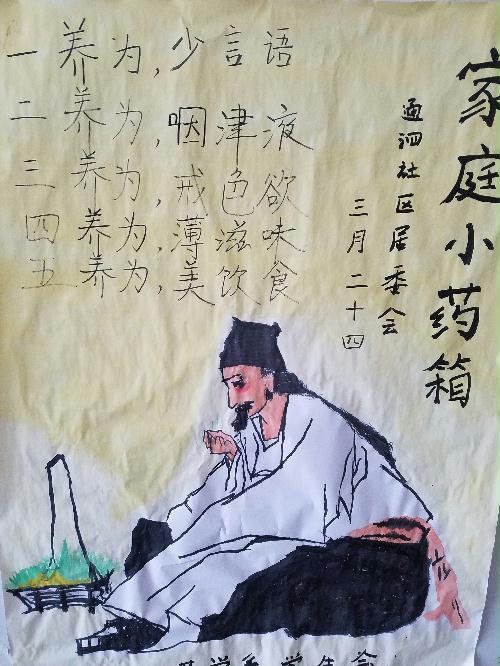 家庭小药箱
通泗社区居委会
三月二十四
一养为，少言语
二养为，咽津液
三养为，戒色欲
四养为，薄滋味
五养为，美饮食
学系学生会